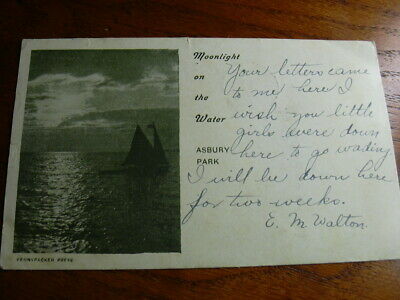 Moonlight
on
the
Water
ASBURY
PARK
Your letters came
to me here I
wish you little
girls were down
here to go wading
I will be down here
for two weeks.
E. M Walton.
PENNYPACKER PRESS